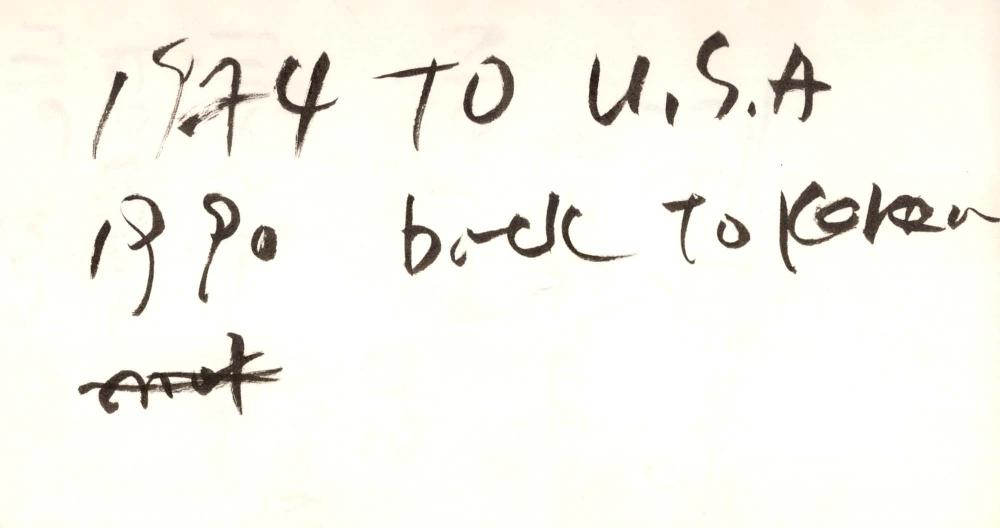 1974 TO U.S.A
1990 back To Korea